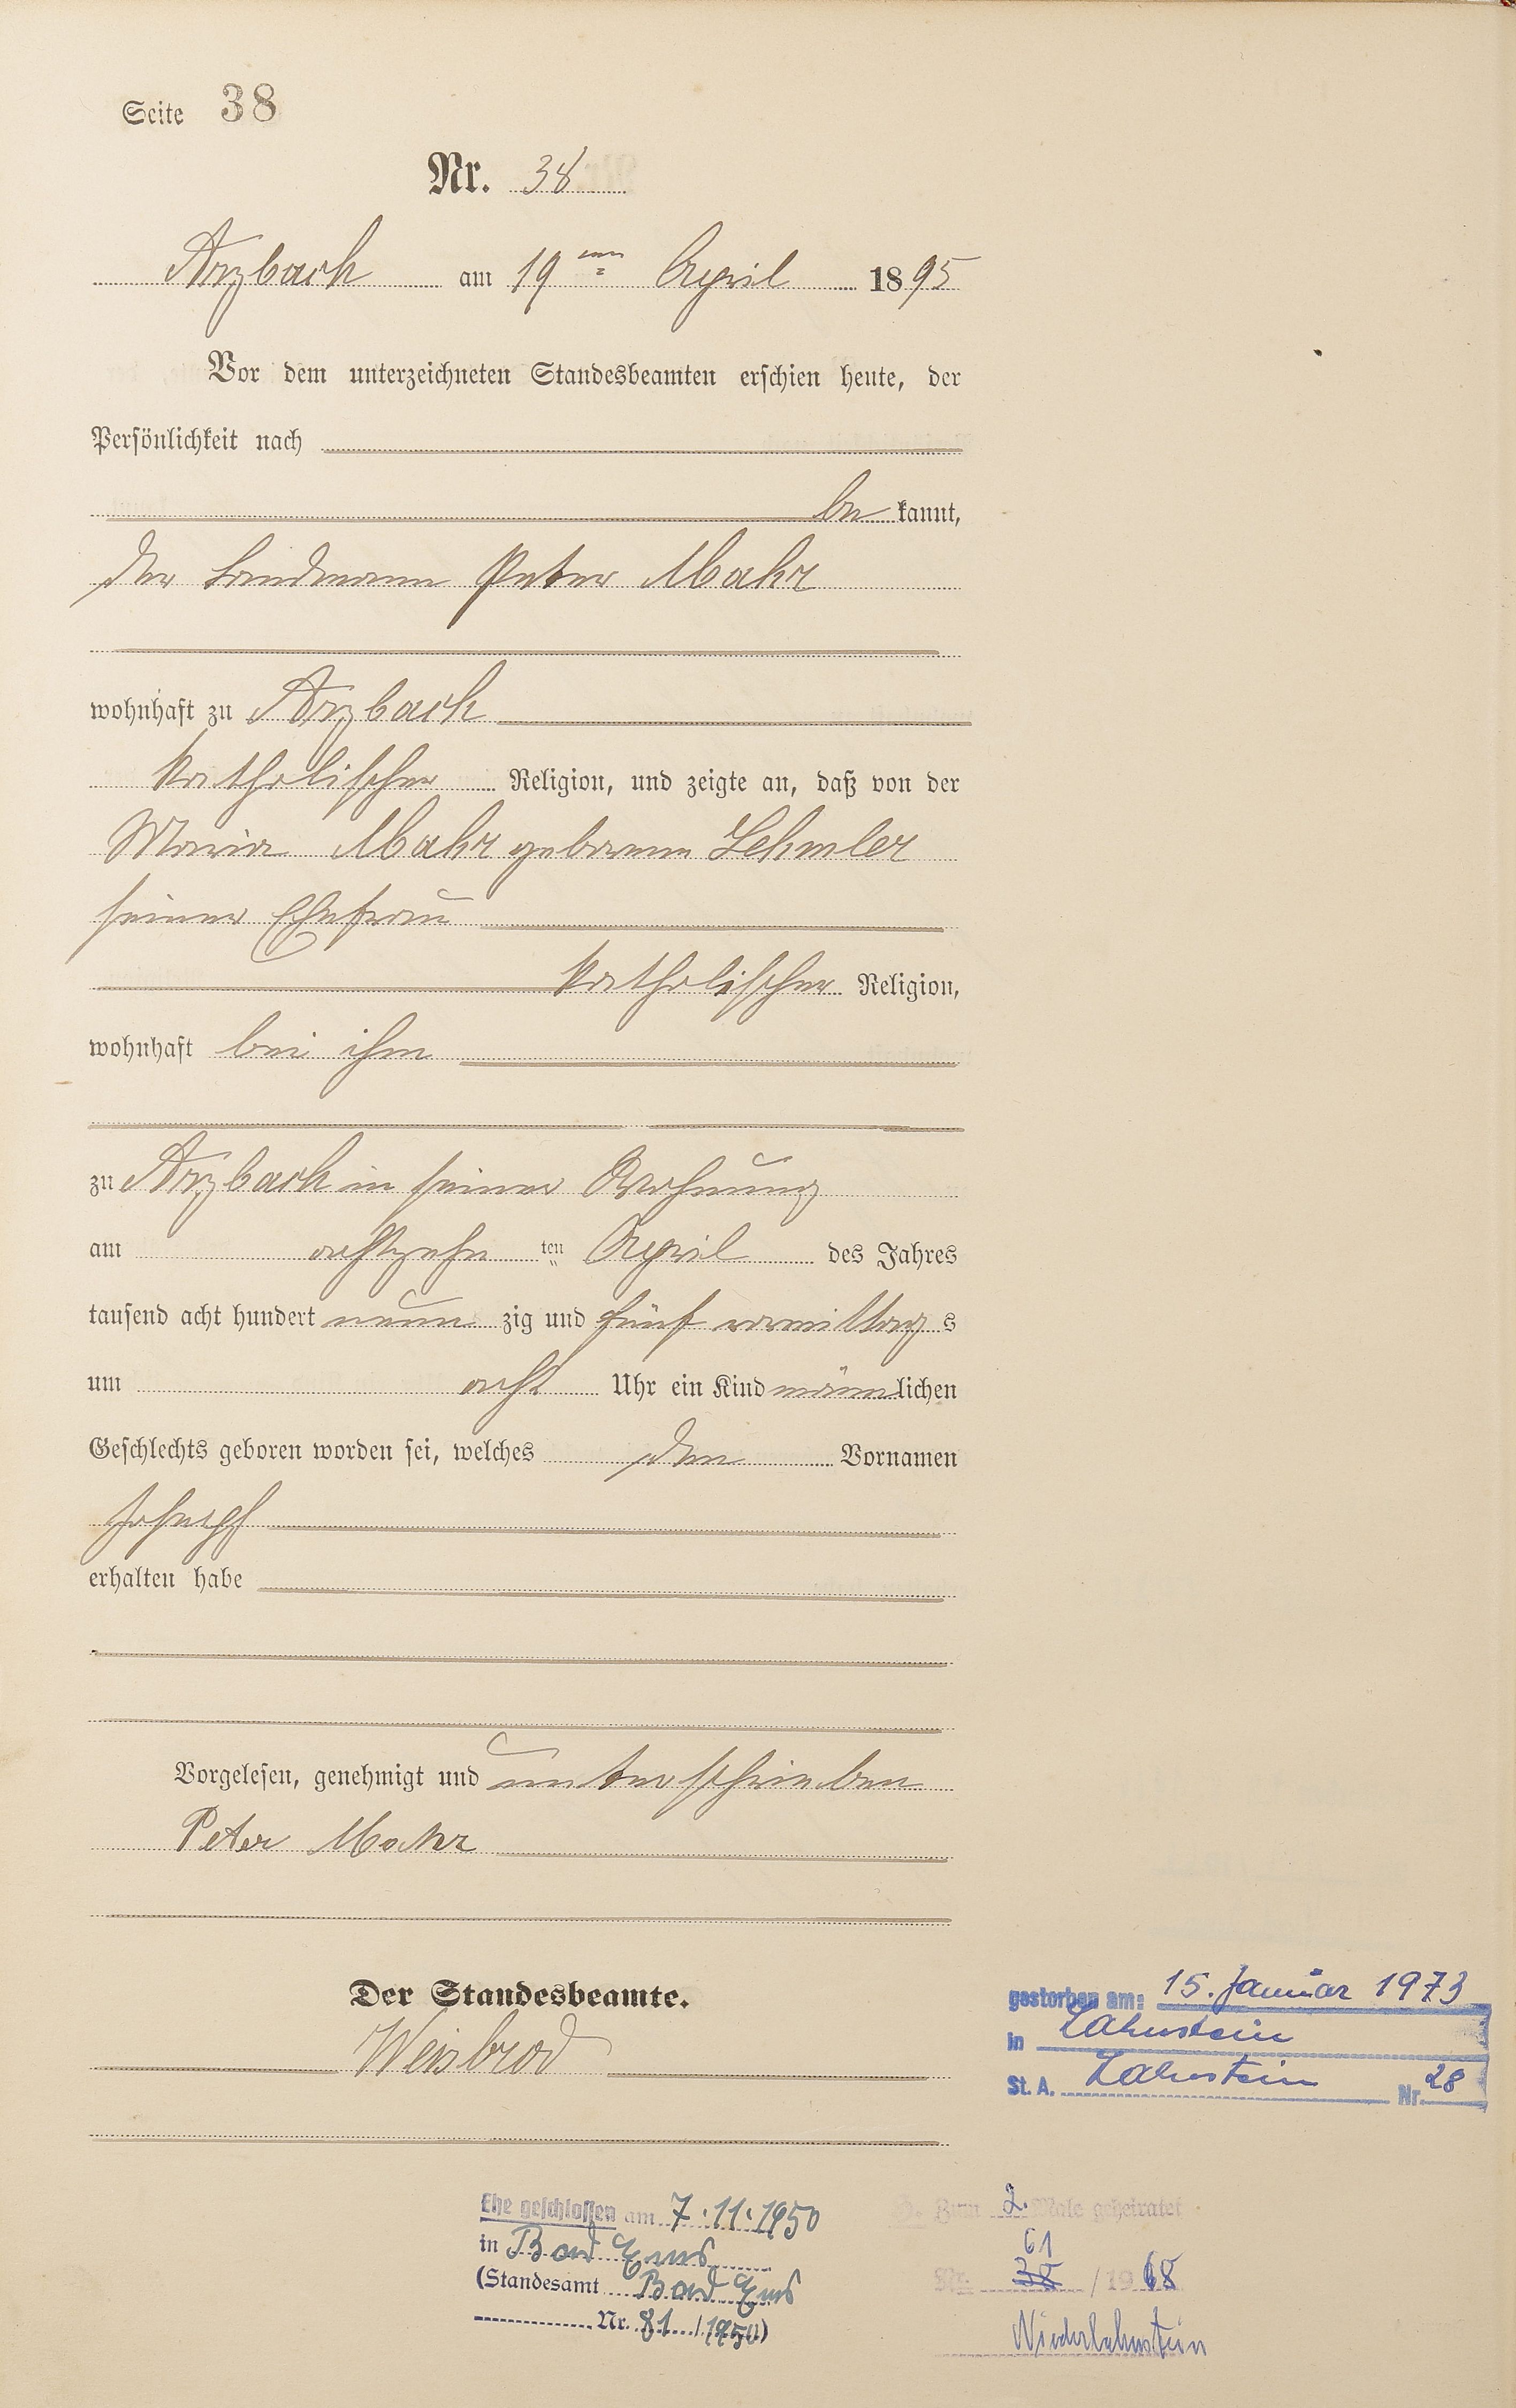 Seite 38
Nr. 38
Arzbach am 19ten April 1895
Vor dem unterzeichneten Standesbeamten erschien heute, der
Persönlichkeit nach
bekannt,
der Landmann Peter Mahr
wohnhaft zu Arzbach
katholischer Religion, und zeigte an, daß von der
Maria Mahr geborenen Lehmler
seiner Ehefrau
katholischer Religion,
wohnhaft bei ihm
zu Arzbach in seiner Wohnung
am achtzehn ten April des Jahres
tausend acht hundert neunzig und fünf vormittags
um acht Uhr ein Kind männlichen
Geschlechts geboren worden sei, welches den Vornamen
Joseph
erhalten habe
Vorgelesen, genehmigt und unterschrieben
Peter Mahr
Der Standesbeamte.
Weisbrod
gestorben am: 15. Januar 1973
in Lahnstein
St. A. Lahnstein Nr. 28
Ehe geschlossen am 7.11.1950
in Bad Ems
(Standesamt Bad Ems
Nr. 81/1950)
Zum 2. Male geheiratet
61
Nr. 38/1968
Niederlahnstein